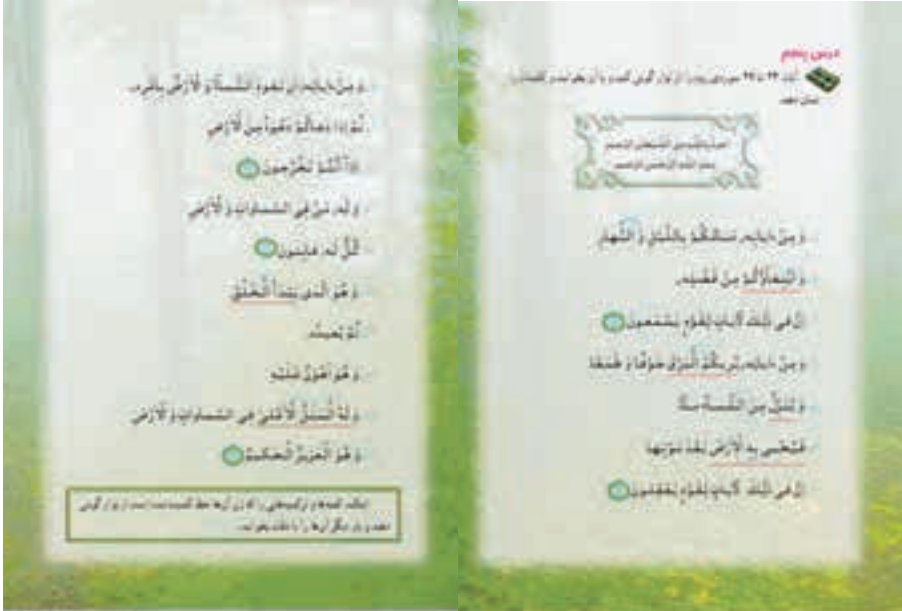 درس پنجم
آیات ۲۳ تا ۲۷ سوره‌ی روم را از نوار گوش کنید و با آن بخوانید و کلمات را
نشان دهید.
اَعوذُ بِاللّٰهِ مِنَ الشَّیطانِ الرَّجیمِ
بِسمِ اللّٰهِ الرَّحمٰنِ الرَّحیمِ
وَ مِنْ ءایاتِهِ مَنامُکُمْ بِاللَّیْلِ وَ النَّهارِ
وَ ابْتِغاؤُکُمْ مِنْ فَضْلِهِ
اِنَّ فی ذٰلِكَ لَآیاتٍ لِقَوْمٍ یَسْمَعونَ
وَ مِنْ ءایاتِهِ یُریکُمُ الْبَرْقَ خَوْفًا وَ طَمَعًا
وَ یُنَزِّلُ مِنَ السَّماءِ ماءً
فَیُحْیی بِهِ الْاَرْضَ بَعْدَ مَوْتِها
اِنَّ فی ذٰلِكَ لَآیاتٍ لِقَوْمٍ یَعْقِلونَ
وَ مِنْ ءایاتِهِ اَنْ تَقومَ السَّماءُ وَ الْاَرْضُ بِاَمْرِهِ
ثُمَّ اِذا دَعاکُمْ دَعْوَةً مِنَ الْاَرْضِ
اِذا اَنْتُمْ تَخْرُجونَ
وَ لَهُ مَنْ فِی السَّماواتِ وَ الْاَرْضِ
کُلٌّ لَهُ قانِتونَ
وَ هُوَ الَّذی یَبْدَأُ الْخَلْقَ
ثُمَّ یُعیدُهُ
وَ هُوَ اَهْوَنُ عَلَیْهِ
وَ لَهُ الْمَثَلُ الْاَعْلیٰ فِی السَّماواتِ وَ الْاَرْضِ
وَ هُوَ الْعَزیزُ الْحَکیمُ
کلمه‌ها و ترکیب‌هایی را که زیر آن‌ها خط کشیده شده است از نوار گوش
دهید و بار دیگر آن‌ها را با دقت بخوانید.